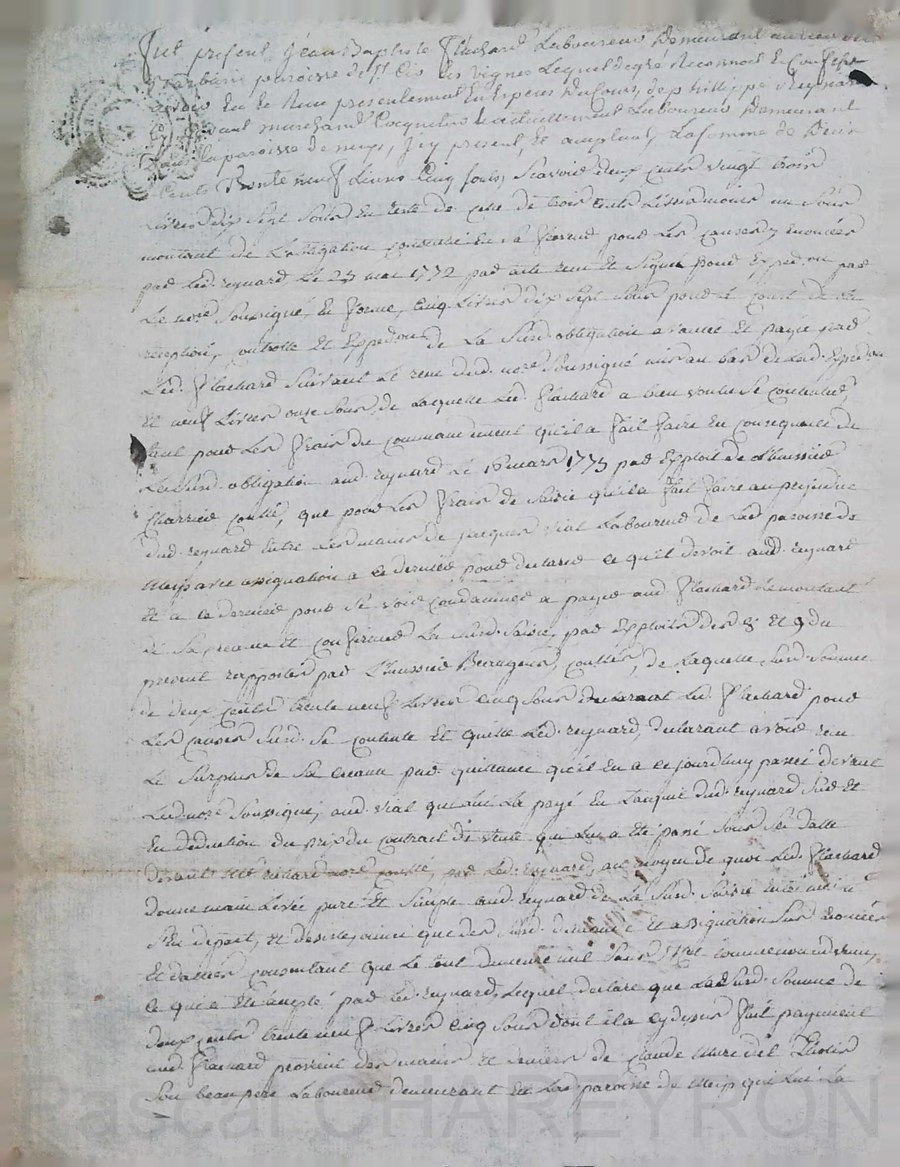 Fut présent Jean Baptiste Flachard Laboureur Demeurant au lieu de
paroisse de St Cir les vignes Lequel de gré Reconnoit et Confesse
avoir Eu et Reçu présentement En Espèces Du Cours, de phillippe reynard
marchand Coquetier et actuellement Laboureur Demeurant
la paroisse de meys, Icy présent, et acceptant, La somme de Deux
Cents Trente neuf Livres Cinq sous, Scavoir deux Cents vingt trois
Livres dix sept Sous En reste de celle de trois Cents Livres moins un Sous
montant de L'obligation consentie En sa faveur pour Les Causes y énoncées
par Led. reynard Le 27 mai 1772 par acte reçu Et Signé pour Expedon par
Le nore Soussigné, En forme, Cinq Livres dix sept Sous pour le Court de
réception, controlle Et Expedon de La Susd. obligation avancé Et payé par
Led. Flachard Suivant Le reçu dud. nore Soussigné mis au bas de Lad. Expedon
Et neuf Livres onze Sous, de Laquelle Led. Flachard a bien voulu Se Contenter,
tant pour Les Frais du Commandement qu'il a fait faire En Conséquence de
La Susd. obligation aud. reynard Le 16 mars 1773 par Exploit de L'huissier
Charrier Controllé, que pour Les Frais de Saisie qu'il a fait faire au préjudice
dud. reynard Entre les mains de jacques vial Laboureur de Lad. paroisse de
Meys avec assignation a ce dernier pour declarer ce qu'il devoit aud. reynard
Et a ce dernier pour Se voir Condamner a payer aud. Flachard le montant
de Sa créance Et Confirmer La Susd. Saisie, par Exploits des 8 Et 9 du
présent rapportés par L'huissier Controllés, de Laquelle Susd. Somme
de deux Cents trente neuf Livres Cinq Sous declarant Led. Flachard pour
Les Causes Susd. Se Contente Et quitte Led. reynard, declarant avoir reçu
Le Surplus de Sa creance par quittance qu'il En a ce jourdhuy passé devant
Led. nore Soussigné, aud. vial qui Lui La payé En L'acquit dud. reynard Sur Et
En déduction du prix du Contrat de vente qui Lui a Eté passé Sous Sa datte
devant Me nore par Led. reynard, au moyen de quoi Led. Flachard
donne main Levée pure Et Simple aud. reynard de La Susd. Saisie
Sen départ, Et desiste, ainsi que des Susd. demande Et assignation Sus Enoncées
Et datées Consentant que Le tout demeure nul Sans
ce qui a Eté accepté par Led. reynard, Lequel declare que La Susd. Somme de
deux Cents trente neuf Livres Cinq Sous dont il a cy dessus fait payement
aud. Flachard provient des mains Et deniers de Claude
Son beau pere Laboureur demeurant En Lad. paroisse de Meys qui Lui La
Pascal CHAREYRON